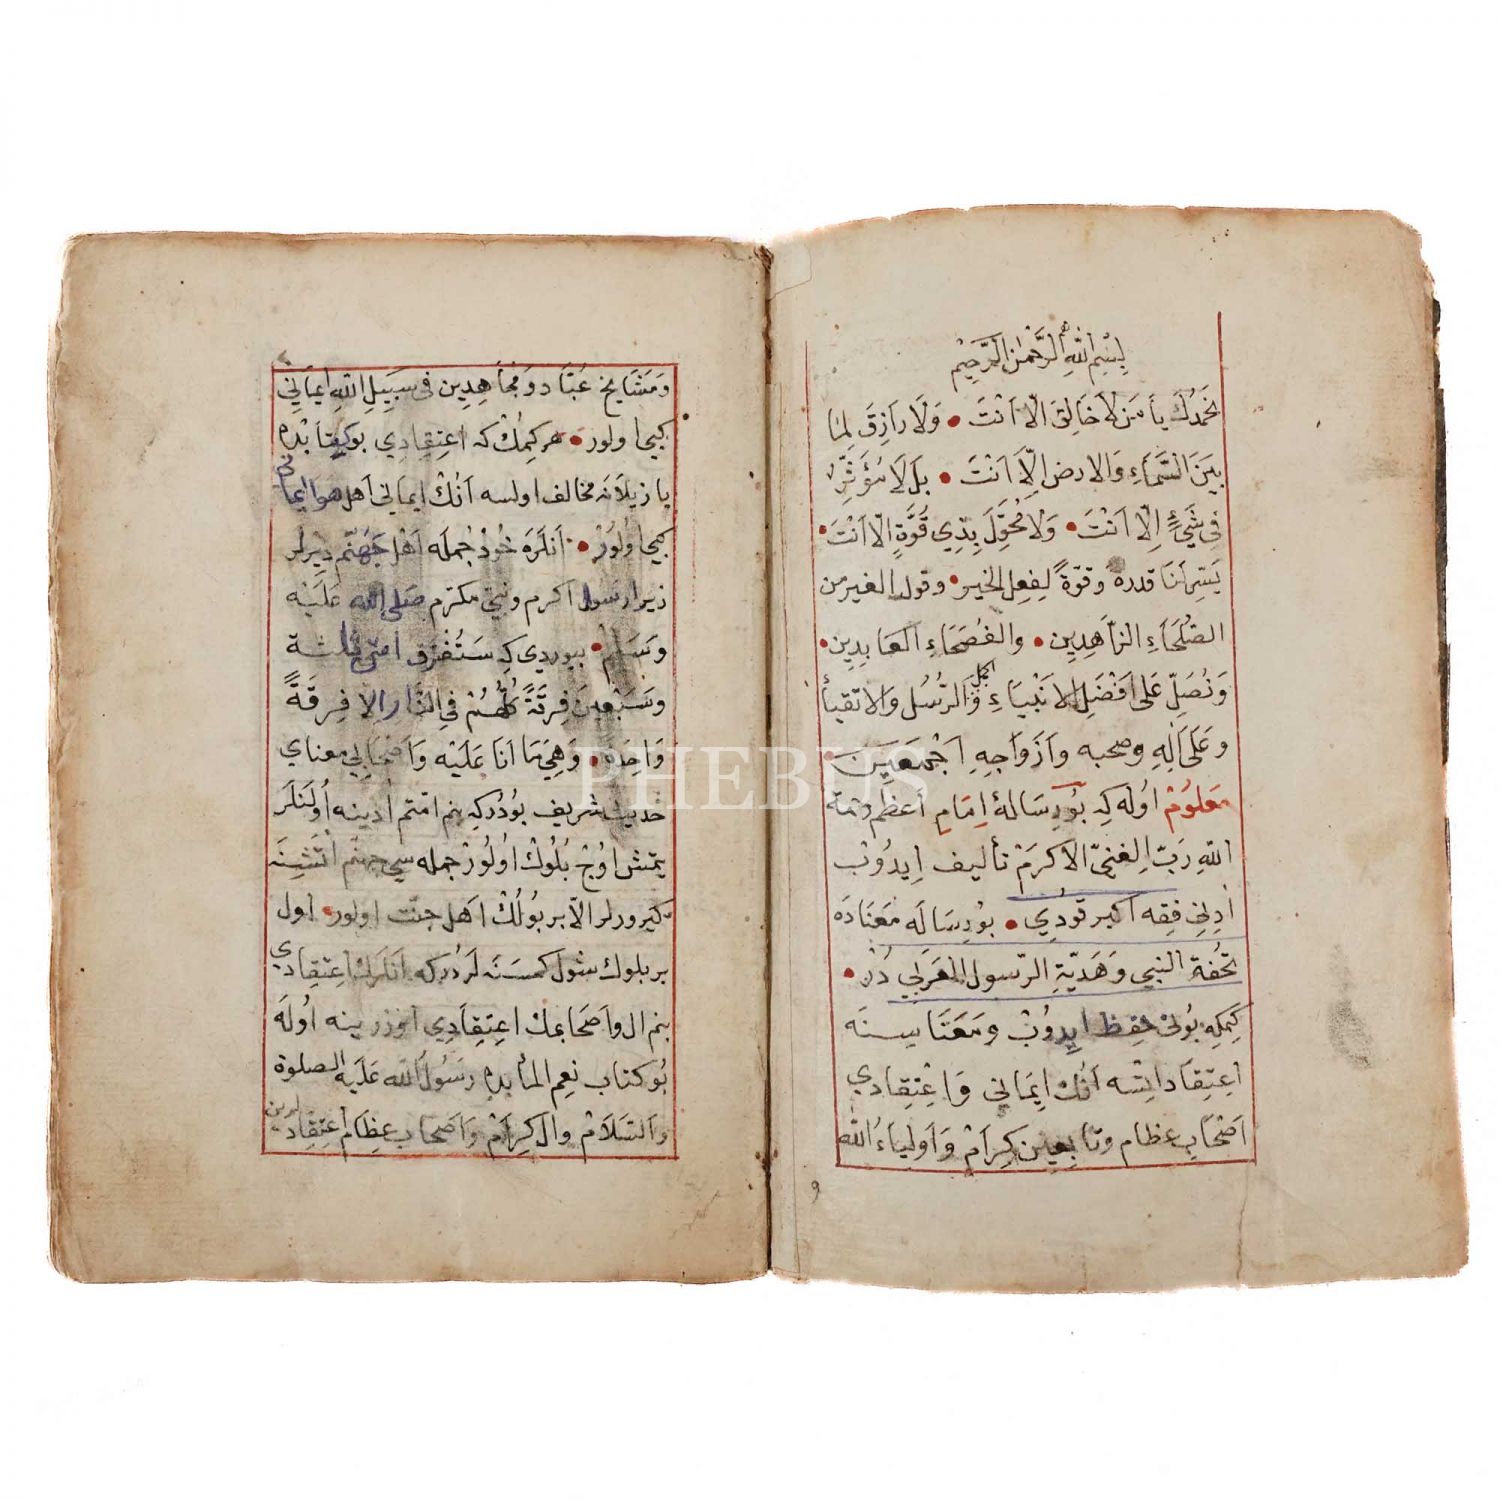 بِسْمِ اللّٰهِ الرَّحْمٰنِ الرَّحِيْمِ
نحمدك يا مَن لا خَالِقَ اِلّا اَنْتَ • وَلَا رَازِقَ لِمَا
بَيْنَ السَّمَاءِ وَالارض اِلّا اَنْتَ • بل لَا مُؤَثِّرَ
فِي شَيْءٍ اِلّا اَنْتَ • وَلَا مُحَوِّلَ بِذِي قُوَّةٍ اِلّا اَنْتَ •
يَسِّر لَنَا قدرة وقوّةً لِفِعلِ الخير • وقول الغير من
الصُّلَحَاءِ الزّاهِدِين • والفُصَحَاءِ العَابِدِين •
وَنُصَلِّ عَلى اَفْضَلِ الانْبِيَاءِ وَالرُّسُل وَالاتقيا
وعَلى آلِهِ وصحبه وَاَزْوَاجِهِ اَجْمَعِين •
مَعلومْ اوله كه بُو رِسَالهٔ اِمَامِ اَعظَم رحمة
اللّٰهِ رَبّ الغنِيّ الاكرَمْ تأليف ايدُوبْ
آدِينِي فقه اكبر قودي • بُو رِسَاله مَعنَاده
تُحْفَة النّبي وَهَديّة الرّسول العَرَبِي دُرْ •
كيمكه بُونى حِفظ ايدُوبْ و مَعْنَاسِنَه
اعتِقَاد ايتسه اَنُكْ اِيمَانِي وَاعْتِقَادِي
اَصْحَابِ عِظام وتابِعِين كِرَامْ وَاَوليَاءُ اللّٰه
وَمَشَايخ عُبّاد ومُجَاهِدِين فى سَبِيلِ اللّٰهِ ايمَانِي
كبي اولور • هر كِمُكْ كه اعتِقَادِي بوكتابده
يازيلانه مخالف اولسه اَنُكْ ايماني اَهل هوا ايماني
كبي اولُورْ • اَنلَره خُودْ جُمله اَهل جَهَنّم ديرلر
زيرا رَسول اكرم ونبيّ مكرّم صَلى اللّٰه عَلَيْه
وَسَلم • بيوردي كه سَتُفْرَق امّتي ثلثة
وَسَبْعِينَ فِرقَةً كُلُّهُمْ في النَّار الا فِرقَةً
وَاحِدَه • وَهِيَ مَا اَنَا عَلَيْه وَاَصْحَابِي معناي
حديث شريف بُودُر كه بنم امّتم اُدينه اُولنلر
يتمش اوُچ بُلُوكْ اولُورْ جمله سي جهنّم آتشِنَه
كيرورلر الا بر بُولُكْ اَهل جنّت اولور • اول
بر بلوك شول كمسَنَه لَردُر كه اَنلرك اعتِقَادِي
بنم ال واَصْحَابمك اعتِقَادِي اوزرينه اوله
بُو كتاب نعم المأبده رَسُول اللّٰه عَلَيه الصلوة
وَالسّلَامْ وال كِرَامْ وَاَصحاب عِظام اعتقادلرين
PHEBUS